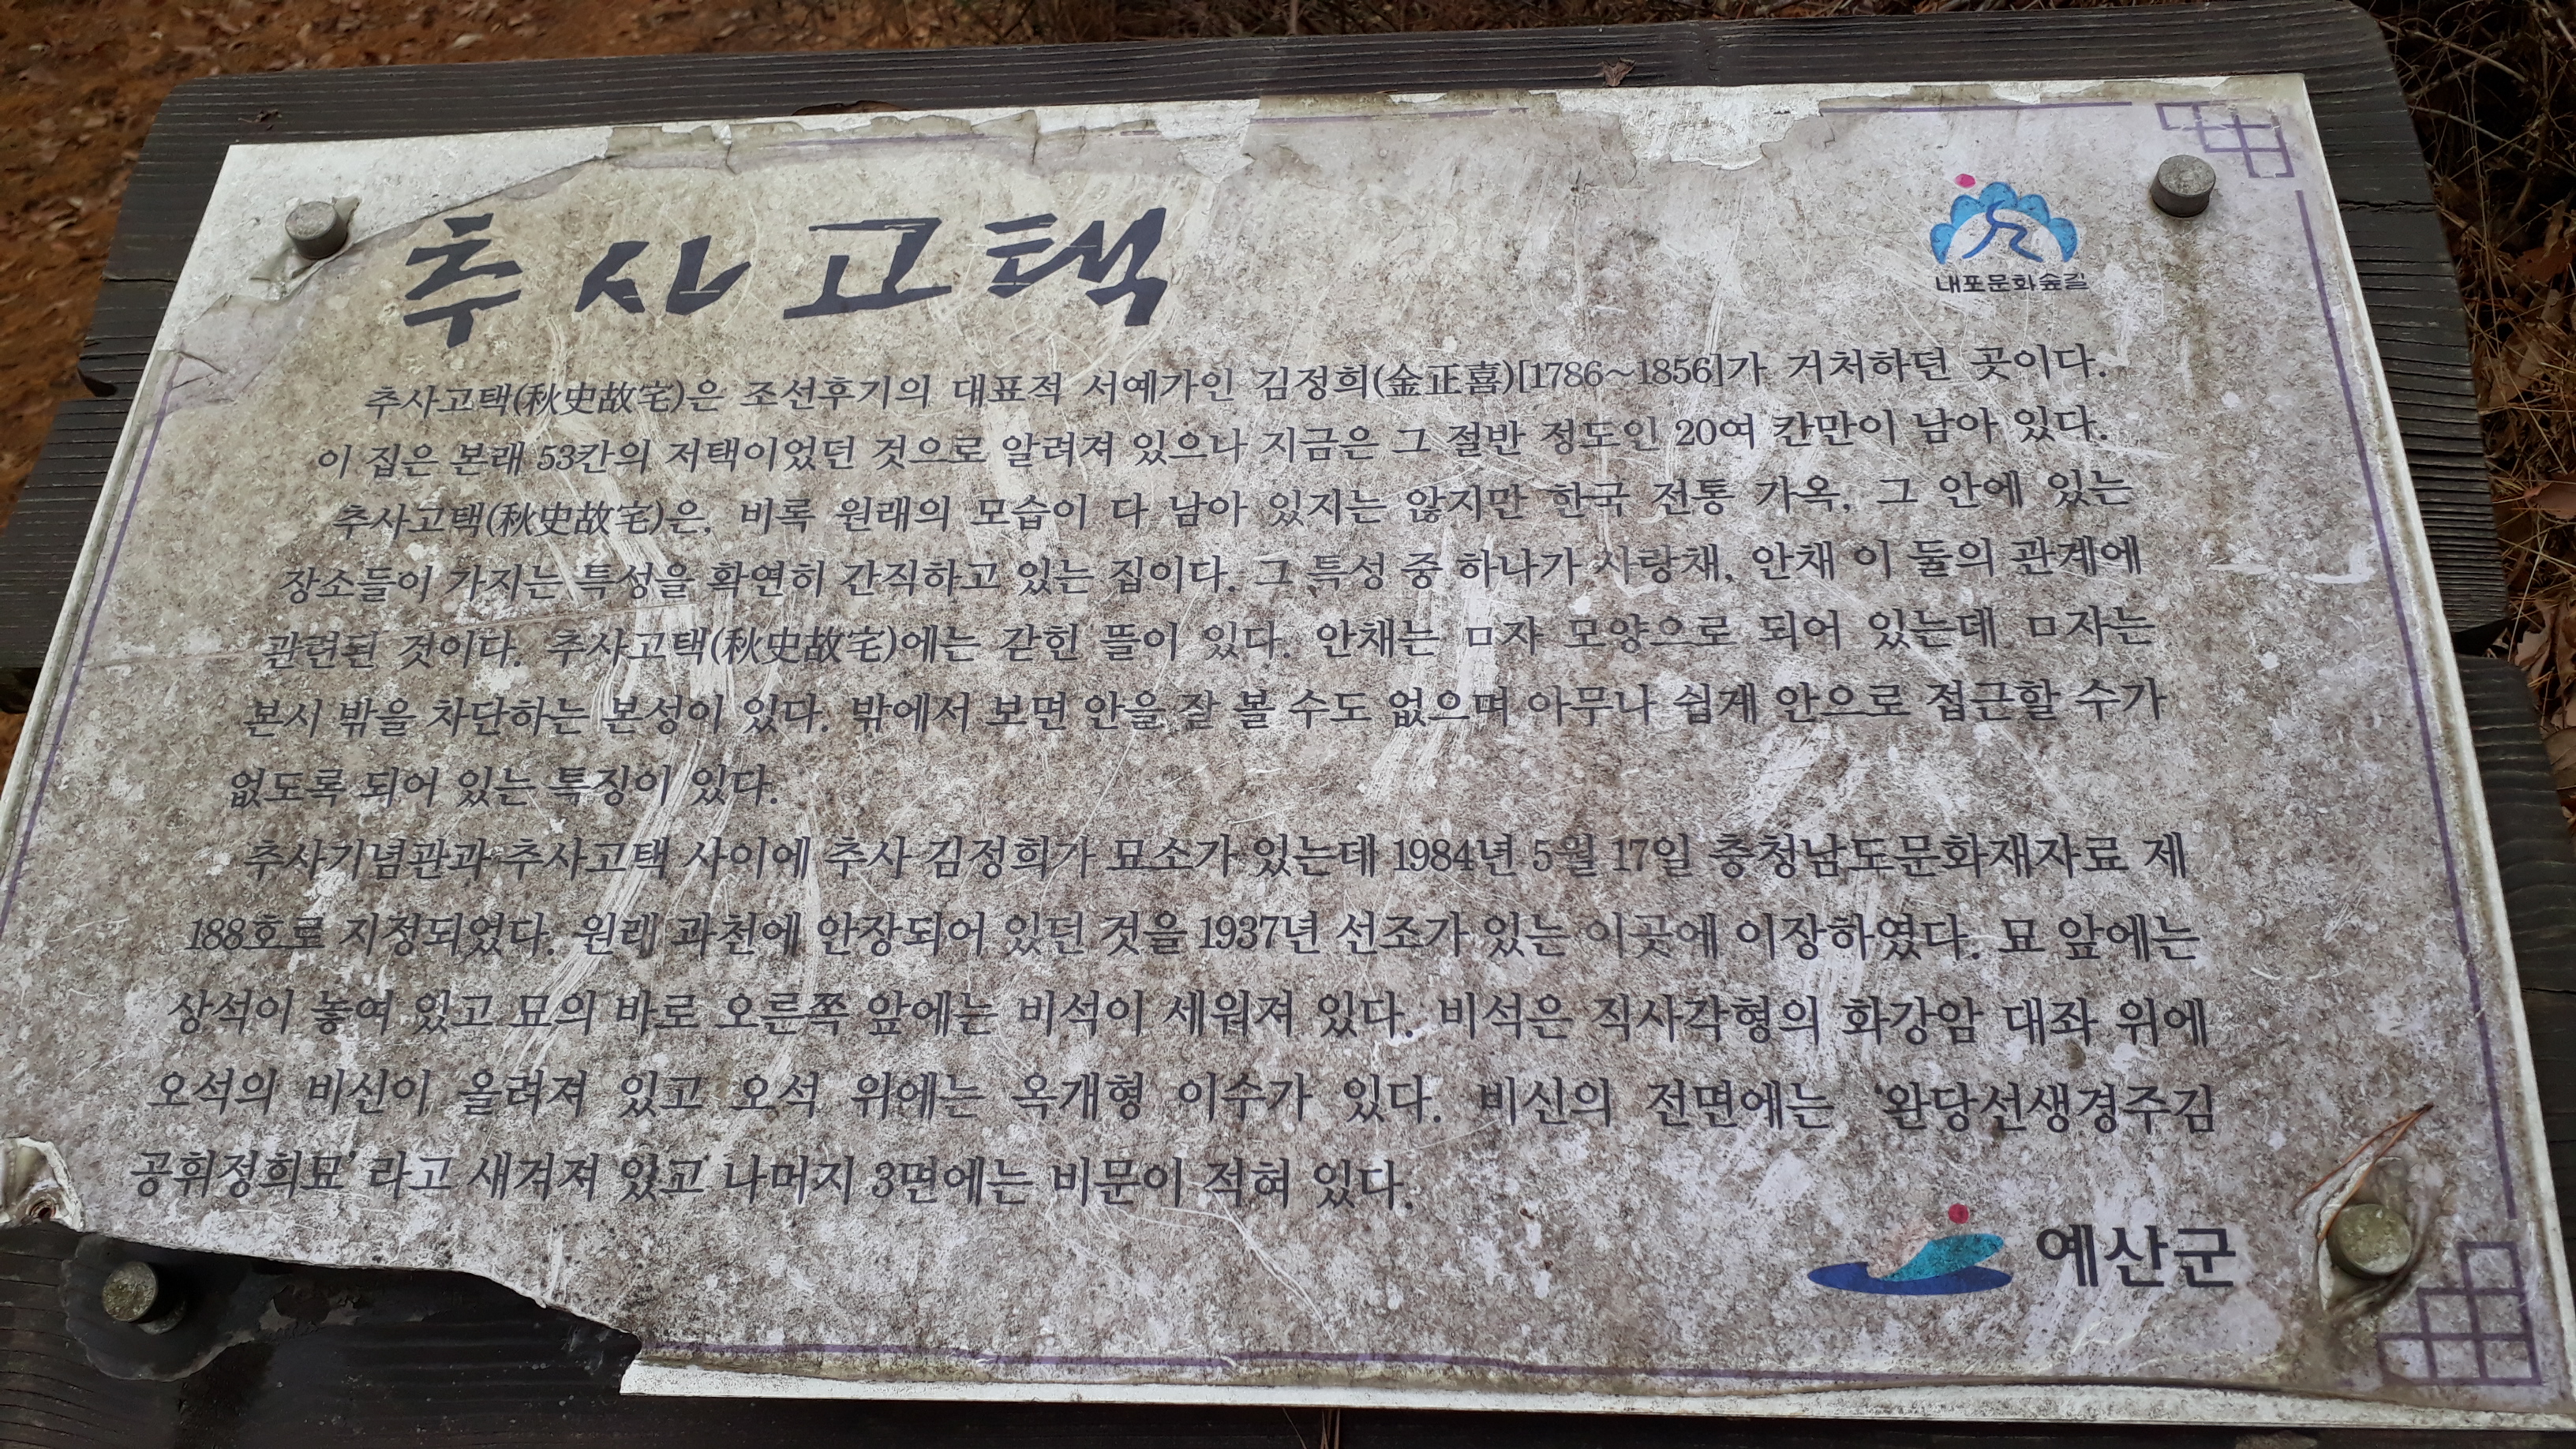 추사고택
내포문화숲길
추사고택(秋史故宅)은 조선후기의 대표적 서예가인 김정희(金正喜)[1786~1856]가 거처하던 곳이다.
이 집은 본래 53칸의 저택이었던 것으로 알려져 있으나 지금은 그 절반 정도인 20여 칸만이 남아 있다.
추사고택(秋史故宅)은, 비록 원래의 모습이 다 남아 있지는 않지만 한국 전통 가옥, 그 안에 있는
장소들이 가지는 특성을 확연히 간직하고 있는 집이다. 그 특성 중 하나가 사랑채, 안채 이 둘의 관계에
관련된 것이다. 추사고택(秋史故宅)에는 갇힌 뜰이 있다. 안채는 ㅁ자 모양으로 되어 있는데 ㅁ자는
본시 밖을 차단하는 본성이 있다. 밖에서 보면 안을 잘 볼 수도 없으며 아무나 쉽게 안으로 접근할 수가
없도록 되어 있는 특징이 있다.
추사기념관과 추사고택 사이에 추사 김정희가 묘소가 있는데 1984년 5월 17일 충청남도문화재자료 제
188호로 지정되었다. 원래 과천에 안장되어 있던 것을 1937년 선조가 있는 이곳에 이장하였다. 묘 앞에는
상석이 놓여 있고 묘의 바로 오른쪽 앞에는 비석이 세워져 있다. 비석은 직사각형의 화강암 대좌 위에
오석의 비신이 올려져 있고 오석 위에는 옥개형 이수가 있다. 비신의 전면에는 '완당선생경주김
공휘정희묘' 라고 새겨져 있고 나머지 3면에는 비문이 적혀 있다.
예산군